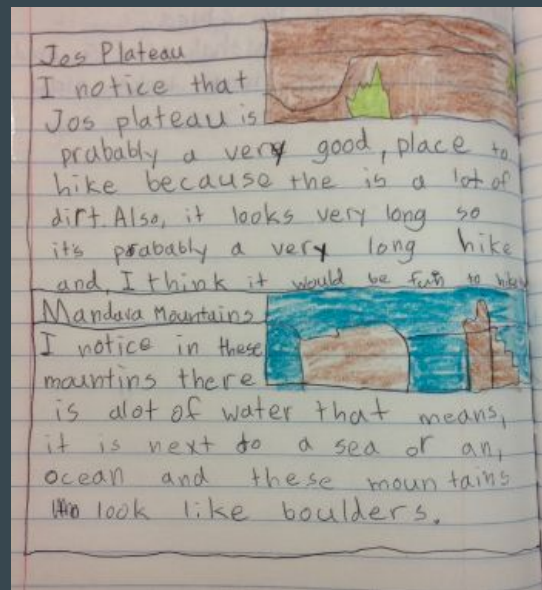 Jos Plateau
I notice that
Jos plateau is
prabably a very good, place to
hike because the is a lot of
dirt. Also, it looks very long so
it's prabably a very long hike
and, I think it would be fun to hike
Mandara Mountains
I notice in these
mountins there
is alot of water that means,
it is next to a sea or an,
ocean and these mountains
look like boulders.